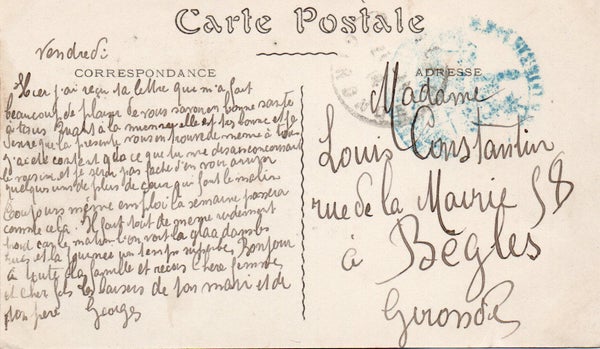 Carte Postale
CORRESPONDANCE
ADRESSE
Vendredi
Hier j'ai reçu ta lettre qui m'a fait
beaucoup de plaisir de vous savoir en bonne santé
à tous quant à la mienne elle est très bonne et je
que la présente vous en trouve de même à tous
J'ai été content de ce que tu me dis concernant
le raisin et je serai pas faché d'en voir arriver
quelques uns de plus de ceux qui font le malin
Toujours même emploi la semaine passera
comme cela. Il fait tout de même rudement
froid car le matin l'on voit la glace dans les
rues et la journée un temps superbe, Bonjour
à toute la famille et reçois chère femme
et cher fils les baisers de ton mari et de
ton père Georges
Madame
Louis Constantin
rue de la Mairie 58
à Bègles
Gironde